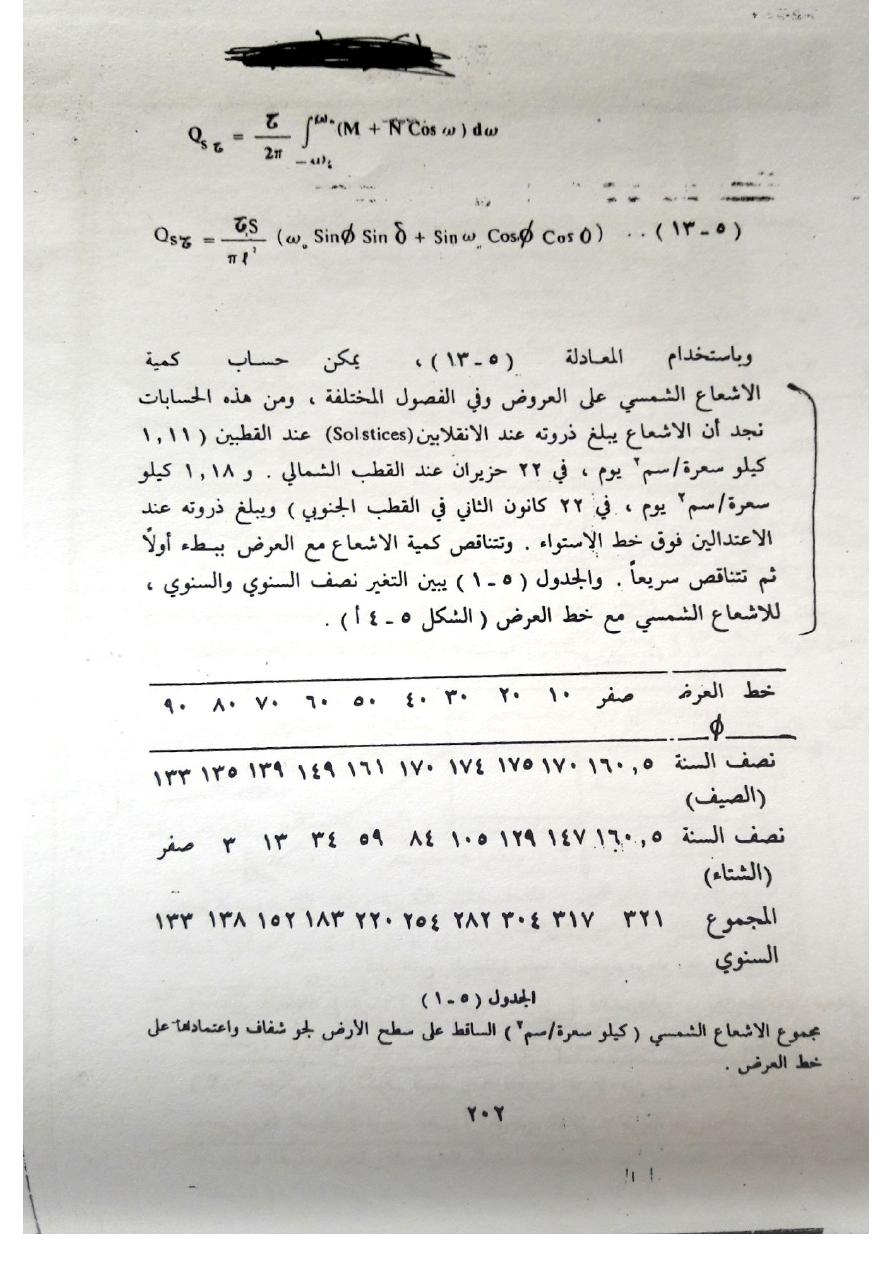 Q_Sτ = τ/2π ∫ (M + N Cos ω) dω
Q_Sτ = τS/πℓ² (ω₀ Sinφ Sin δ + Sin ω₀ Cosφ Cos δ) .. (٥ـ١٣)
وباستخدام المعادلة (٥ـ١٣)، يمكن حساب كمية
الاشعاع الشمسي على العروض وفي الفصول المختلفة ، ومن هذه الحسابات
نجد أن الاشعاع يبلغ ذروته عند الانقلابين (Solstices) عند القطبين (١,١١
كيلو سعرة/سم٢ يوم ، في ٢٢ حزيران عند القطب الشمالي . و ١,١٨ كيلو
سعرة/سم٢ يوم ، في ٢٢ كانون الثاني في القطب الجنوبي) ويبلغ ذروته عند
الاعتدالين فوق خط الاستواء . وتتناقص كمية الاشعاع مع العرض ببطء أولاً
ثم تتناقص سريعاً . والجدول (٥ـ١) يبين التغير نصف السنوي والسنوي ،
للاشعاع الشمسي مع خط العرض (الشكل ٥ـ٤ أ) .
خط العرض صفر ١٠ ٢٠ ٣٠ ٤٠ ٥٠ ٦٠ ٧٠ ٨٠ ٩٠
φ
نصف السنة ١٦٠,٥ ١٧٠ ١٧٥ ١٧٤ ١٧٠ ١٦١ ١٤٩ ١٣٩ ١٣٥ ١٣٣
(الصيف)
نصف السنة ١٦٠,٥ ١٤٧ ١٢٩ ١٠٥ ٨٤ ٥٩ ٣٤ ١٣ ٣ صفر
(الشتاء)
المجموع ٣٢١ ٣١٧ ٣٠٤ ٢٨٢ ٢٥٤ ٢٢٠ ١٨٣ ١٥٢ ١٣٨ ١٣٣
السنوي
الجدول (٥ـ١)
مجموع الاشعاع الشمسي (كيلو سعرة/سم٢) الساقط على سطح الأرض لجو شفاف واعتمادها على
خط العرض .
٢٠٢